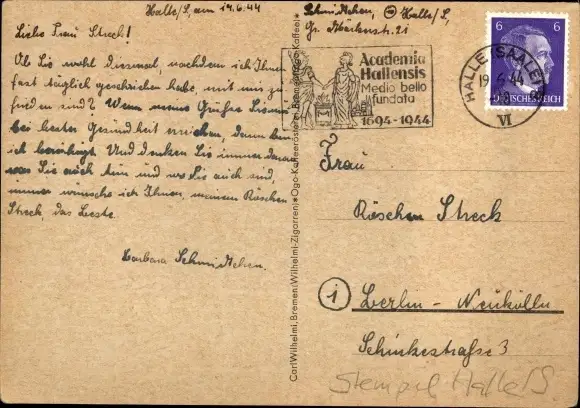 Halle/S, am 19.6.44
Liebe Frau Streck!
Ob Sie wohl diesmal, nachdem ich Ihnen
fast täglich geschrieben habe, mit mir zu
frieden sind? Wenn meine Grüße Sie
bei bester Gesundheit erreichen, dann bin
ich beruhigt. Und denken Sie immer daran
was Sie auch tun und wo Sie auch sind,
immer wünsche ich Ihnen, meinem Röschen
Streck, das Beste.
Barbara Schmidtchen.
Carl Wilhelmi, Bremen (Wilhelmi-Zigarren) • Ogo-Kaffeerösterei, Bremen (Ogo-Kaffee)
Schmidtchen, Halle/S,
Gr. Märkerstr. 21
Academia
Hallensis
Medio bello
fundata
1694-1944
HALLE (SAALE)
19.6.44
VI
6 6
DEUTSCHES REICH
Frau
Röschen Streck
1 Berlin-Neukölln
Schinkestraße 3
Stempel Halle/S